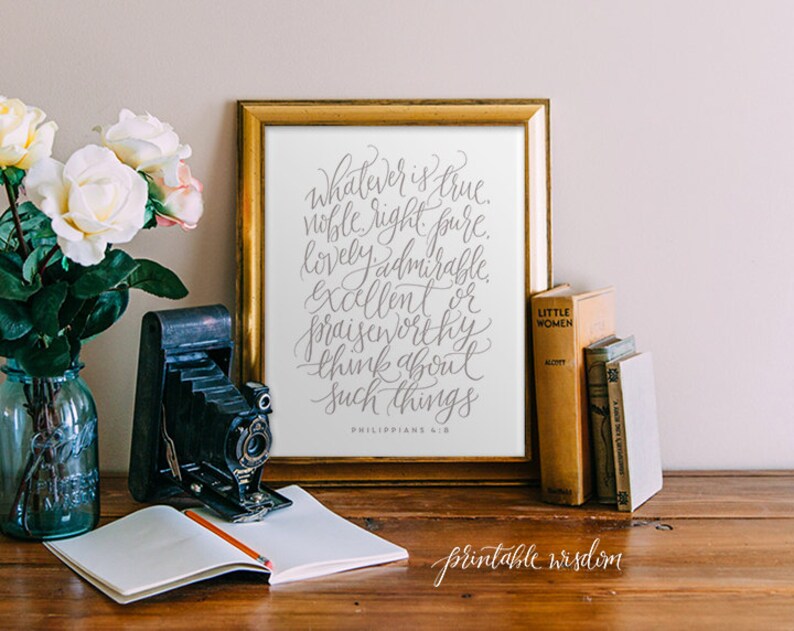 whatever is true,
noble, right, pure,
lovely, admirable,
excellent or
praiseworthy
think about
such things
PHILIPPIANS 4:8
LITTLE
WOMEN
ALCOTT
printable wisdom